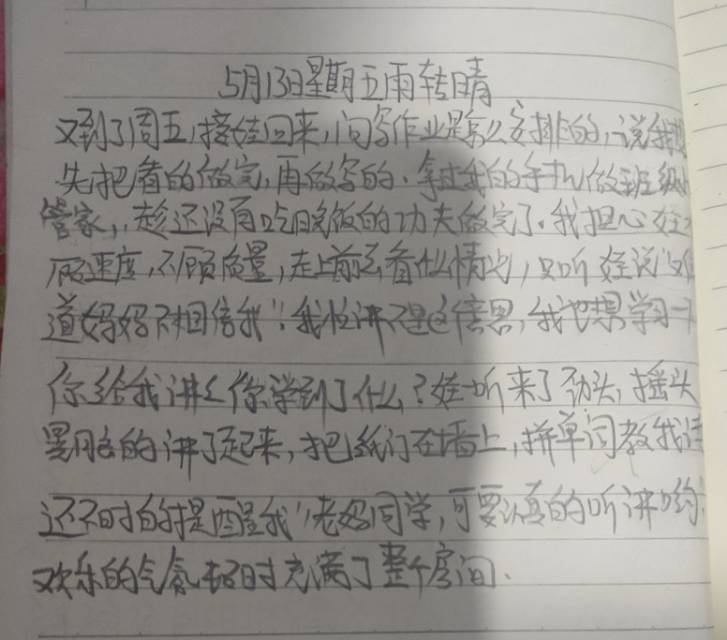 5月13日星期五雨转晴
又到了周五,接娃回来,问写作业是怎么安排的,说我要
先把看的做完,再做写的.拿过我的手机做班级小
管家,,趁还没有吃晚饭的功夫做完了.我担心娃只
顾速度,不顾质量,走上前去看什么情况,只听娃说"难
道妈妈不相信我".我忙讲不是这个意思,我也想学习一下
你给我讲讲你学到了什么?娃听来了劲头,摇头
晃脑的讲了起来,把纸订在墙上,拼单词教我读
还不时的提醒我"老妈同学,可要认真的听讲哟
欢乐的气氛顿时充满了整个房间.